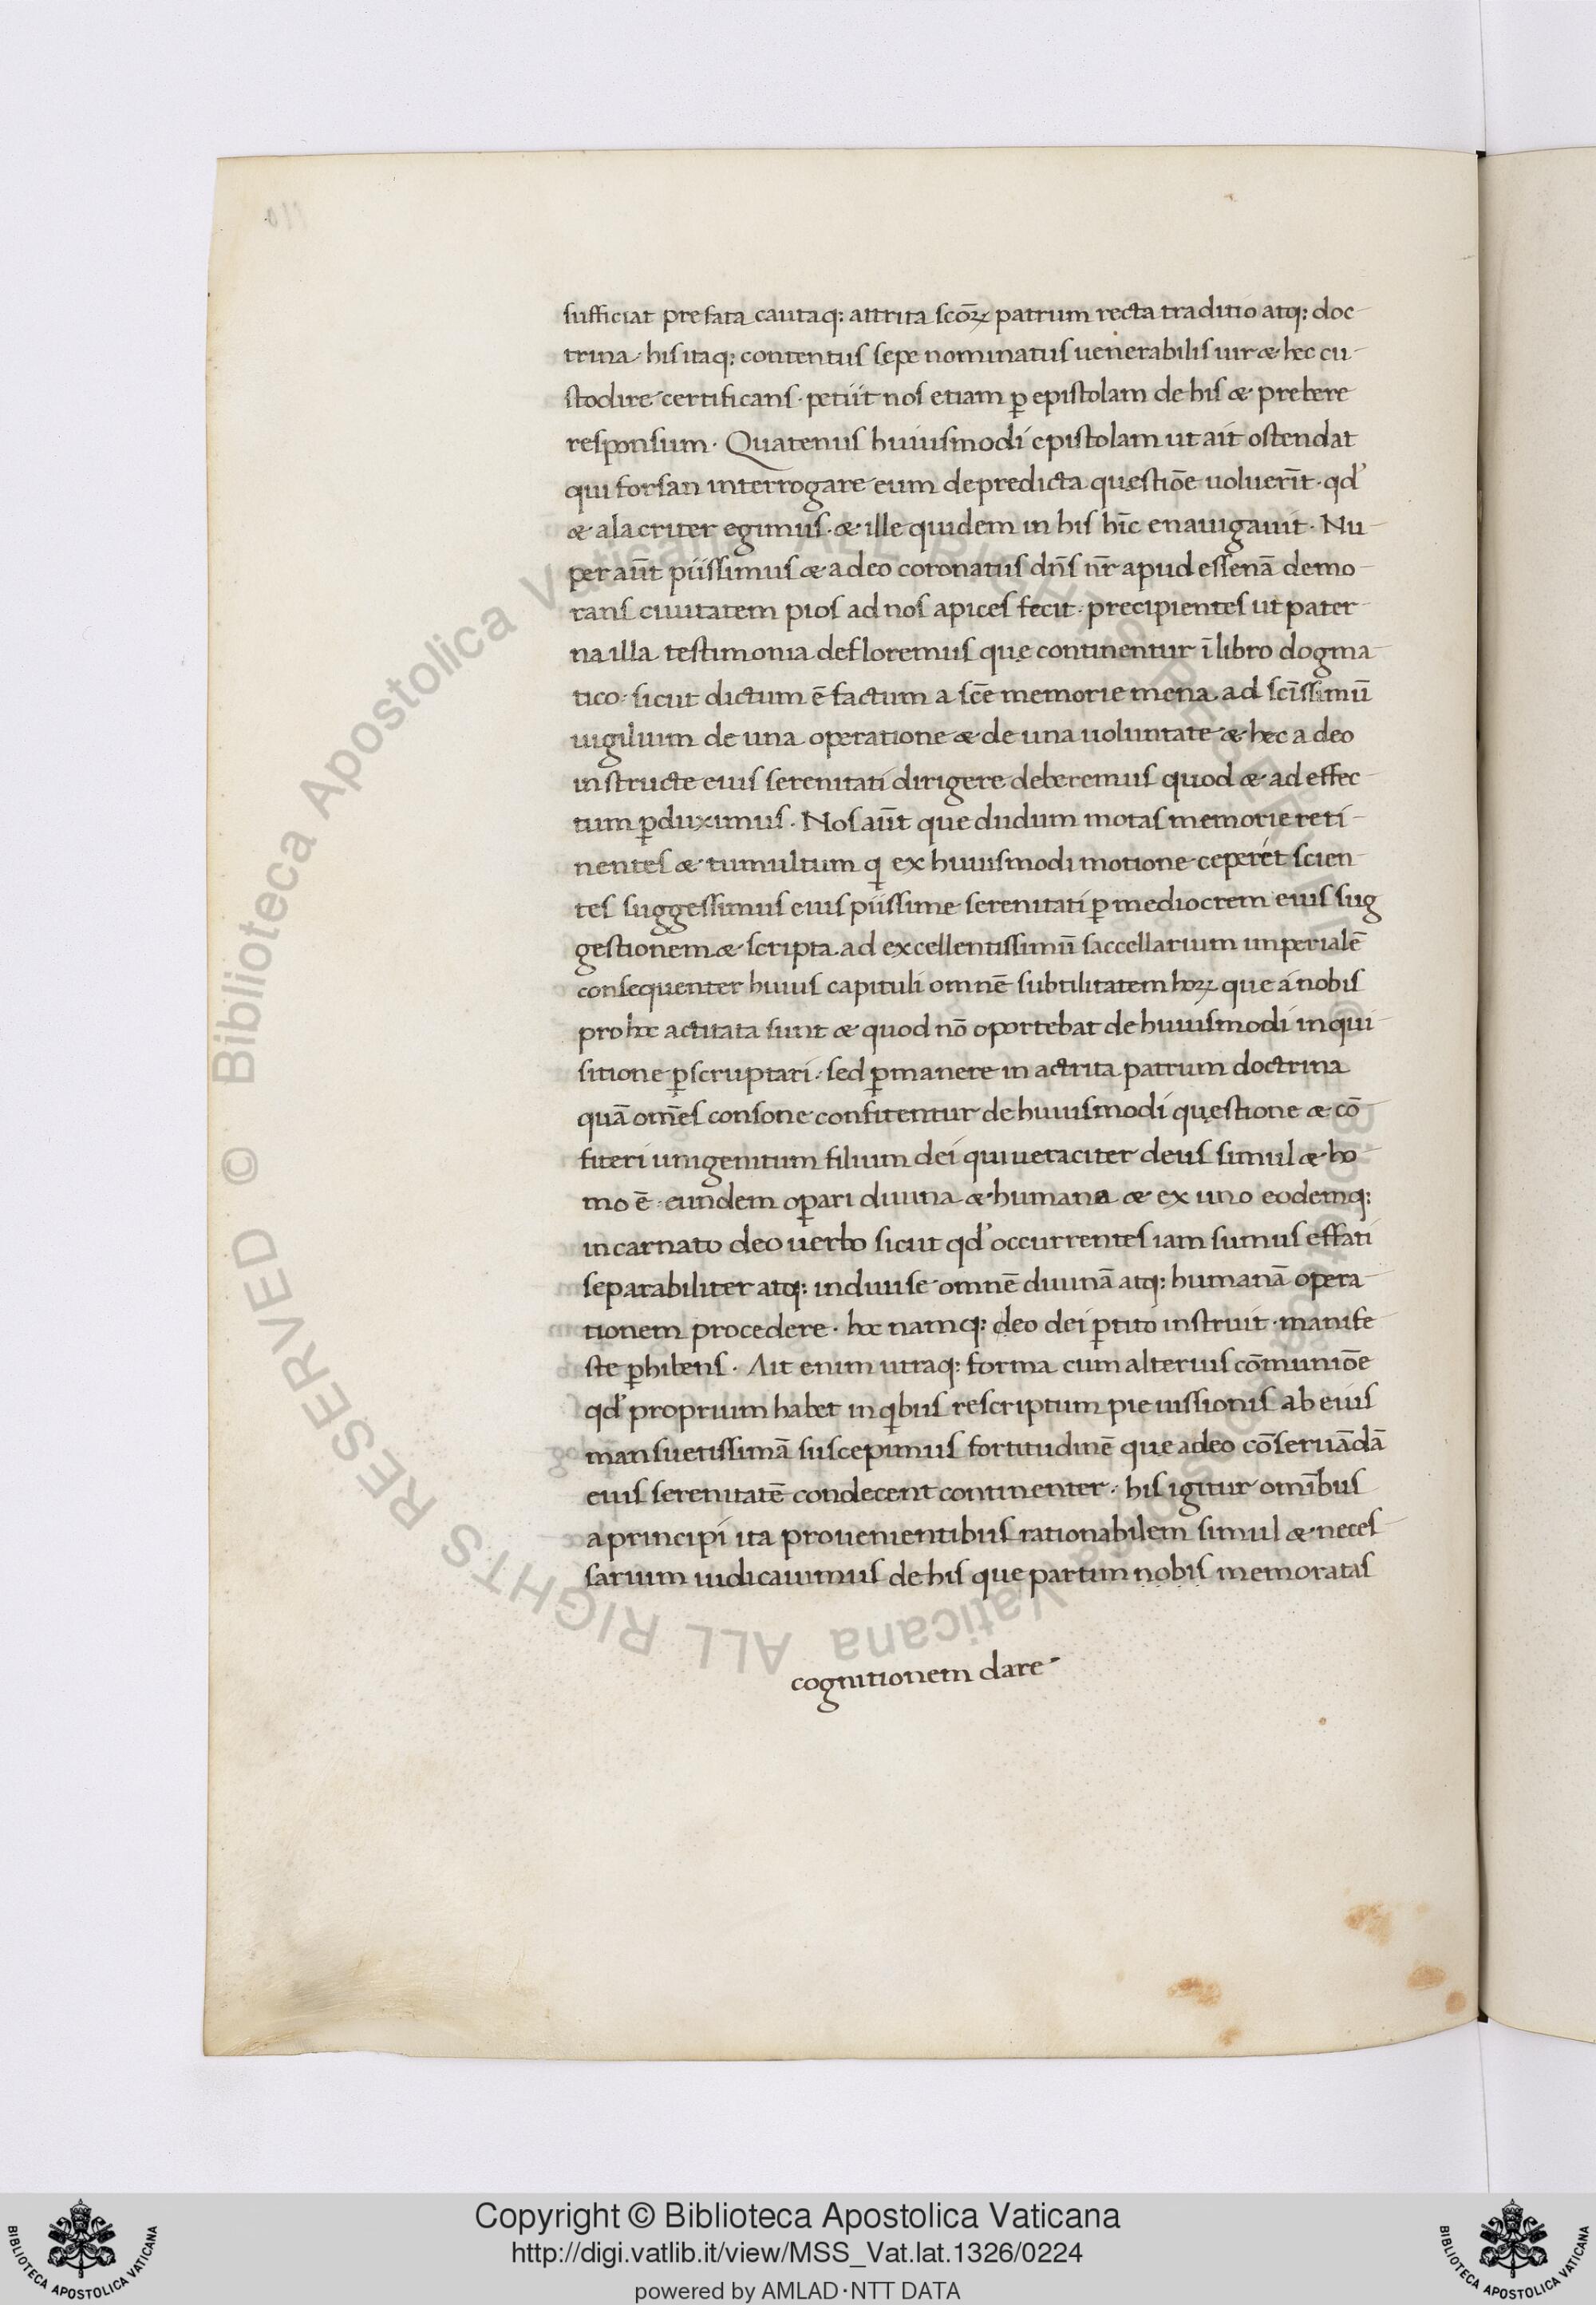 sufficiat prefata cautaq: attrita scōꝝ patrum recta traditio atq: doc-
trina· his itaq: contentus sepe nominatus uenerabilis uir & hec cu-
stodire certificans· petiit nos etiam ꝑ epistolam de his & prebere
responsum· Quatenus huiusmodi epistolam ut ait ostendat
qui forsan interrogare eum de predicta quęstiōe uoluerīt· qđ
& alacriter egimus· & ille quidem in his hīc enauigauit· Nu-
per aūt piissimus & a deo coronatus dn̄s nr̄ apud essenā demo-
rans ciuitatem pios ad nos apices fecit· precipientes ut pater-
na illa testimonia defloremus quę continentur ī libro dogma-
tico· sicut dictum ē factum a scē memorie mena ad scīssimū
uigilium de una operatione & de una uoluntate & hec a deo
instructe eius serenitati dirigere deberemus quod & ad effec-
tum ꝑduximus· Nos aūt que dudum motas memorie reti-
nentes & tumultum q̄ ex huiusmodi motione ceperēt scien-
tes suggessimus eius piissime serenitati ꝑ mediocrem eius sug
gestionem & scripta ad excellentissimū saccellarium imperialē
consequenter huius capituli omnē subtilitatem hoꝝ que a nobis
pro hoc actitata sunt & quod nō oportebat de huiusmodi inqui-
sitione ꝑscruptari· sed ꝑmanere in actrita patrum doctrina
quā omēs consone confitentur de huiusmodi quęstione & cō-
fiteri unigenitum filium dei qui ueraciter deus simul & ho-
mo ē· eundem oꝑari diuina & humana & ex uno eodemq:
incarnato deo uerbo sicut qđ occurrentes iam sumus effati
separabiliter atq: indiuise omnē diuinā atq: humanā opera-
tionem procedere· hoc namq: deo dei ꝑtito instruit· manife-
ste ꝑhibens· Ait enim utraq: forma cum alterius cōmuniōe
qđ proprium habet in qibus rescriptum pie iussionis ab eius
mansuetissimā suscepimus fortitudinē que adeo cōseruādā
eius serenitatē condecent continenter· his igitur omībus
a principi ita prouenientibus rationabilem simul & neces-
sarium iudicauimus de his que partim nobis memoratas
cognitionem dare
Copyright © Biblioteca Apostolica Vaticana
http://digi.vatlib.it/view/MSS_Vat.lat.1326/0224
powered by AMLAD·NTT DATA
BIBLIOTECA APOSTOLICA VATICANA
BIBLIOTECA APOSTOLICA VATICANA
© Biblioteca Apostolica Vaticana ALL RIGHTS RESERVED
© Biblioteca Apostolica Vaticana ALL RIGHTS RESERVED